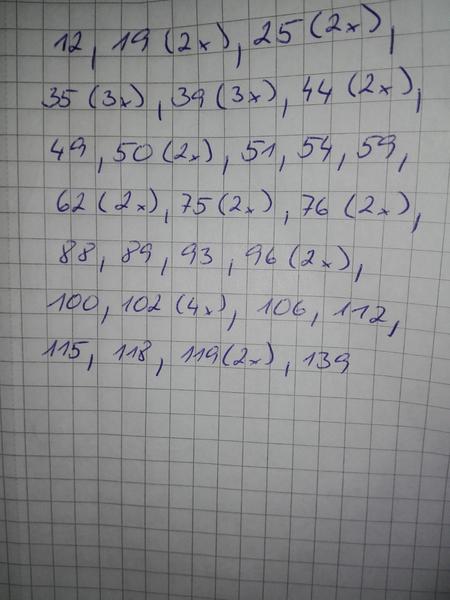 12, 19 (2x), 25 (2x),
35 (3x), 39 (3x), 44 (2x),
49, 50 (2x), 51, 54, 59,
62 (2x), 75 (2x), 76 (2x),
88, 89, 93, 96 (2x),
100, 102 (4x), 106, 112,
115, 118, 119 (2x), 139